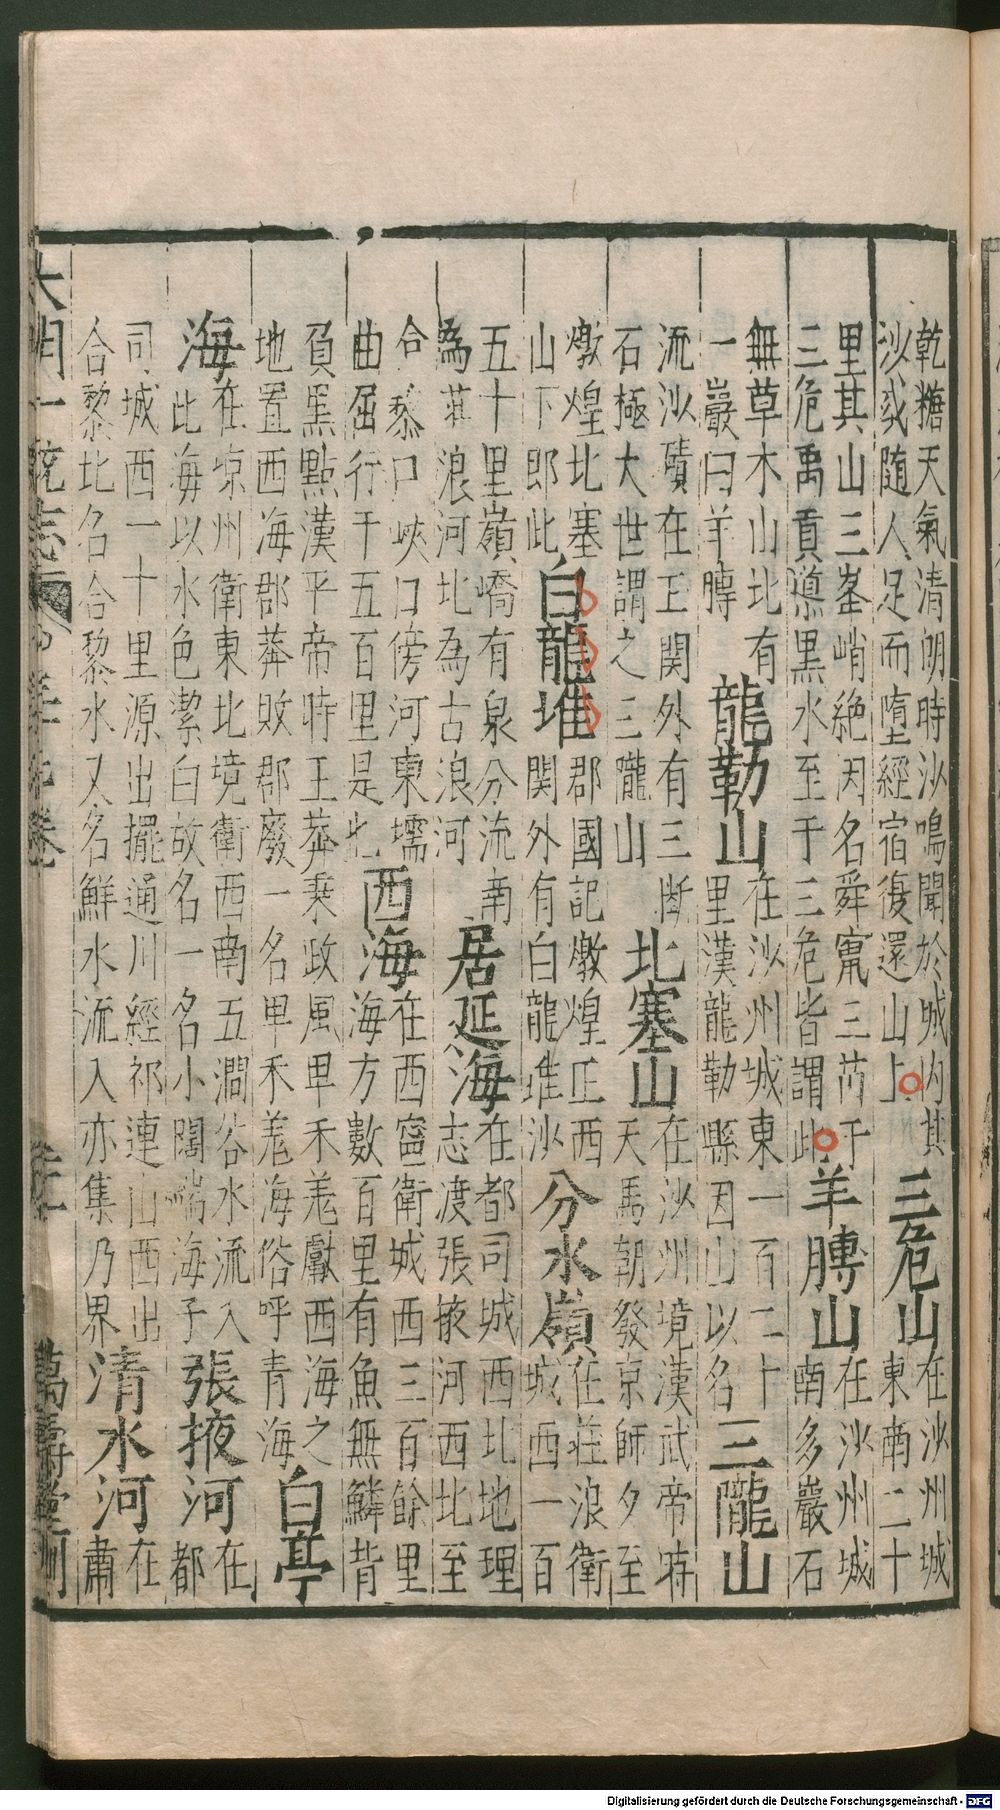 乾糖天氣清朗時沙鳴聞於城內其
沙或隨人足而墮經宿復還山上
三危山
在沙州城
東南二十
里其山三峯峭絕因名舜竄三苗于
三危禹貢導黑水至于三危皆謂此
羊膊山
在沙州城
南多巖石
無草木山北有
一巖曰羊膊
龍勒山
在沙州城東一百二十
里漢龍勒縣因山以名
三隴山
流沙磧在玉関外有三断
石極大世謂之三隴山
北塞山
在沙州境漢武帝時
天馬朝發京師夕至
燉煌北塞
山下即此
白龍堆
郡國記燉煌正西
関外有白龍堆沙
分水嶺
在莊浪衛
城西一百
五十里嶺嶠有泉分流南
為莊浪河北為古浪河
居延海
在都司城西北地理
志渡張掖河西北至
合黎口峽口傍河東壖
曲屈行千五百里是也
西海
在西寧衛城西三百餘里
海方數百里有魚無鱗背
負黑點漢平帝時王莽秉政風卑禾羌獻西海之
地置西海郡莽敗郡廢一名卑禾羌海俗呼青海
白亭
海
在凉州衛東北境衛西南五澗谷水流入
此海以水色潔白故名一名小闊端海子
張掖河
在
都
司城西一十里源出擺通川經祁連山西出
合黎北名合黎水又名鮮水流入亦集乃界
清水河
在
肅
大明一統志
萬壽堂刊
Digitalisierung gefördert durch die Deutsche Forschungsgemeinschaft - DFG